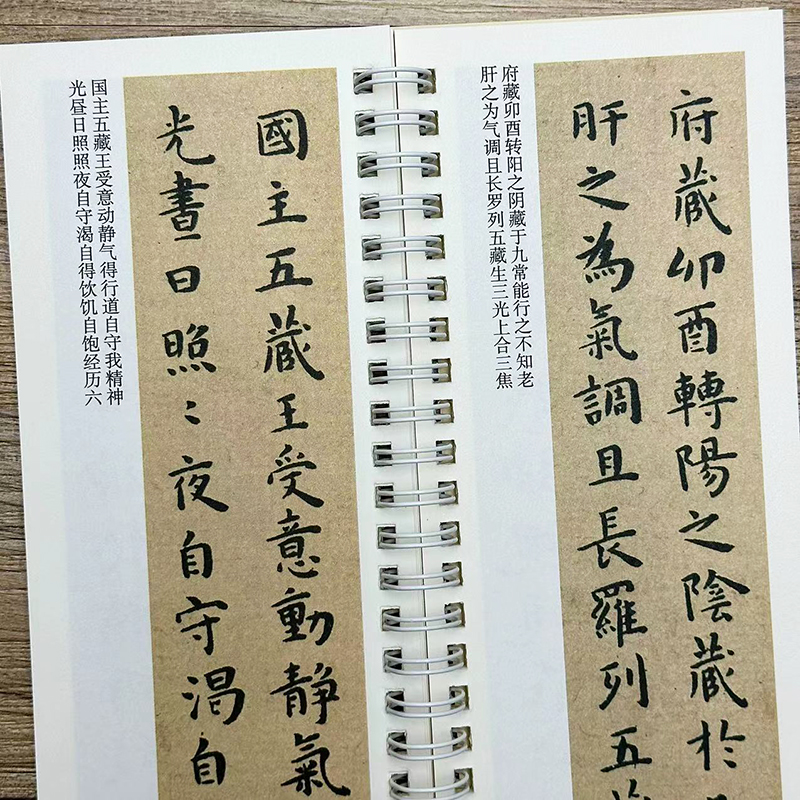 府藏卯酉轉陽之陰藏於
肝之為氣調且長羅列五
府藏卯酉转阳之阴藏于九常能行之不知老
肝之为气调且长罗列五藏生三光上合三焦
國主五藏王受意動靜氣
光晝日照〻夜自守渴自
国主五藏王受意动静气得行道自守我精神
光昼日照照夜自守渴自得饮饥自饱经历六